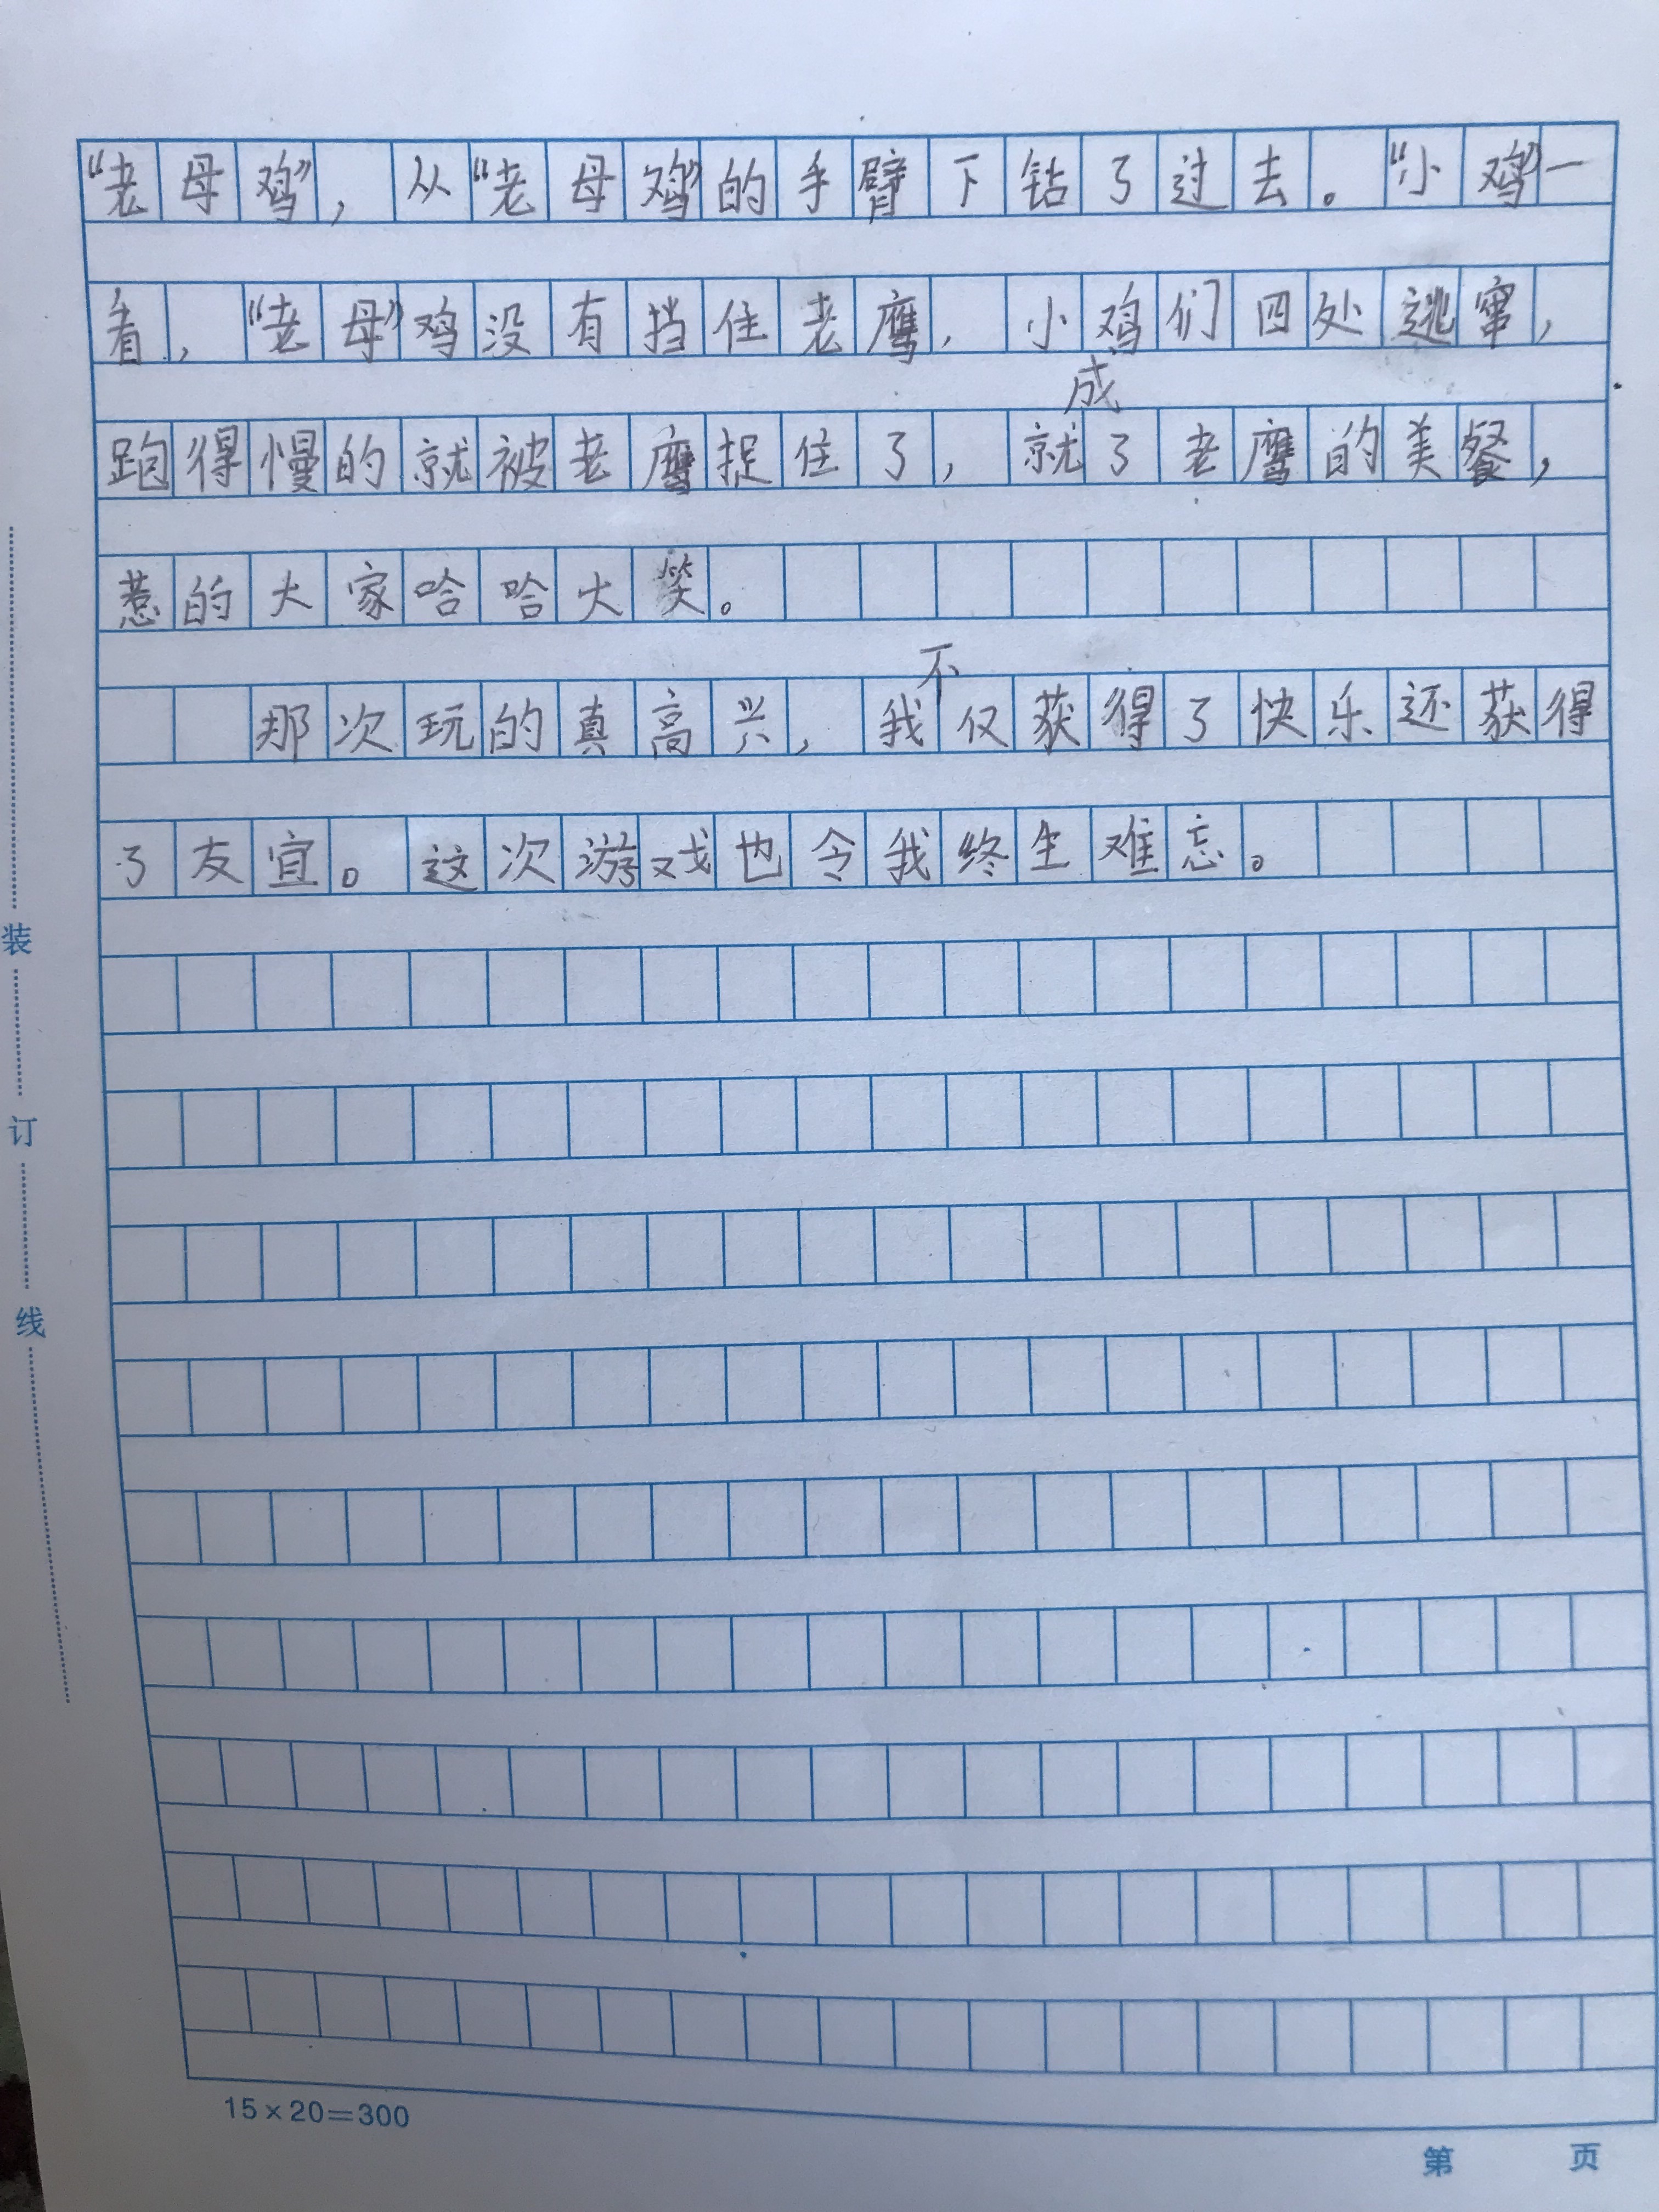 “老母鸡”，从“老母鸡”的手臂下钻了过去。“小鸡”一
看，“老母”鸡没有挡住老鹰，小鸡们四处逃窜，
成
跑得慢的就被老鹰捉住了，就了老鹰的美餐，
惹的大家哈哈大笑。
不
那次玩的真高兴，我仅获得了快乐还获得
了友宜。这次游戏也令我终生难忘。
装
订
线
15×20=300
第 页